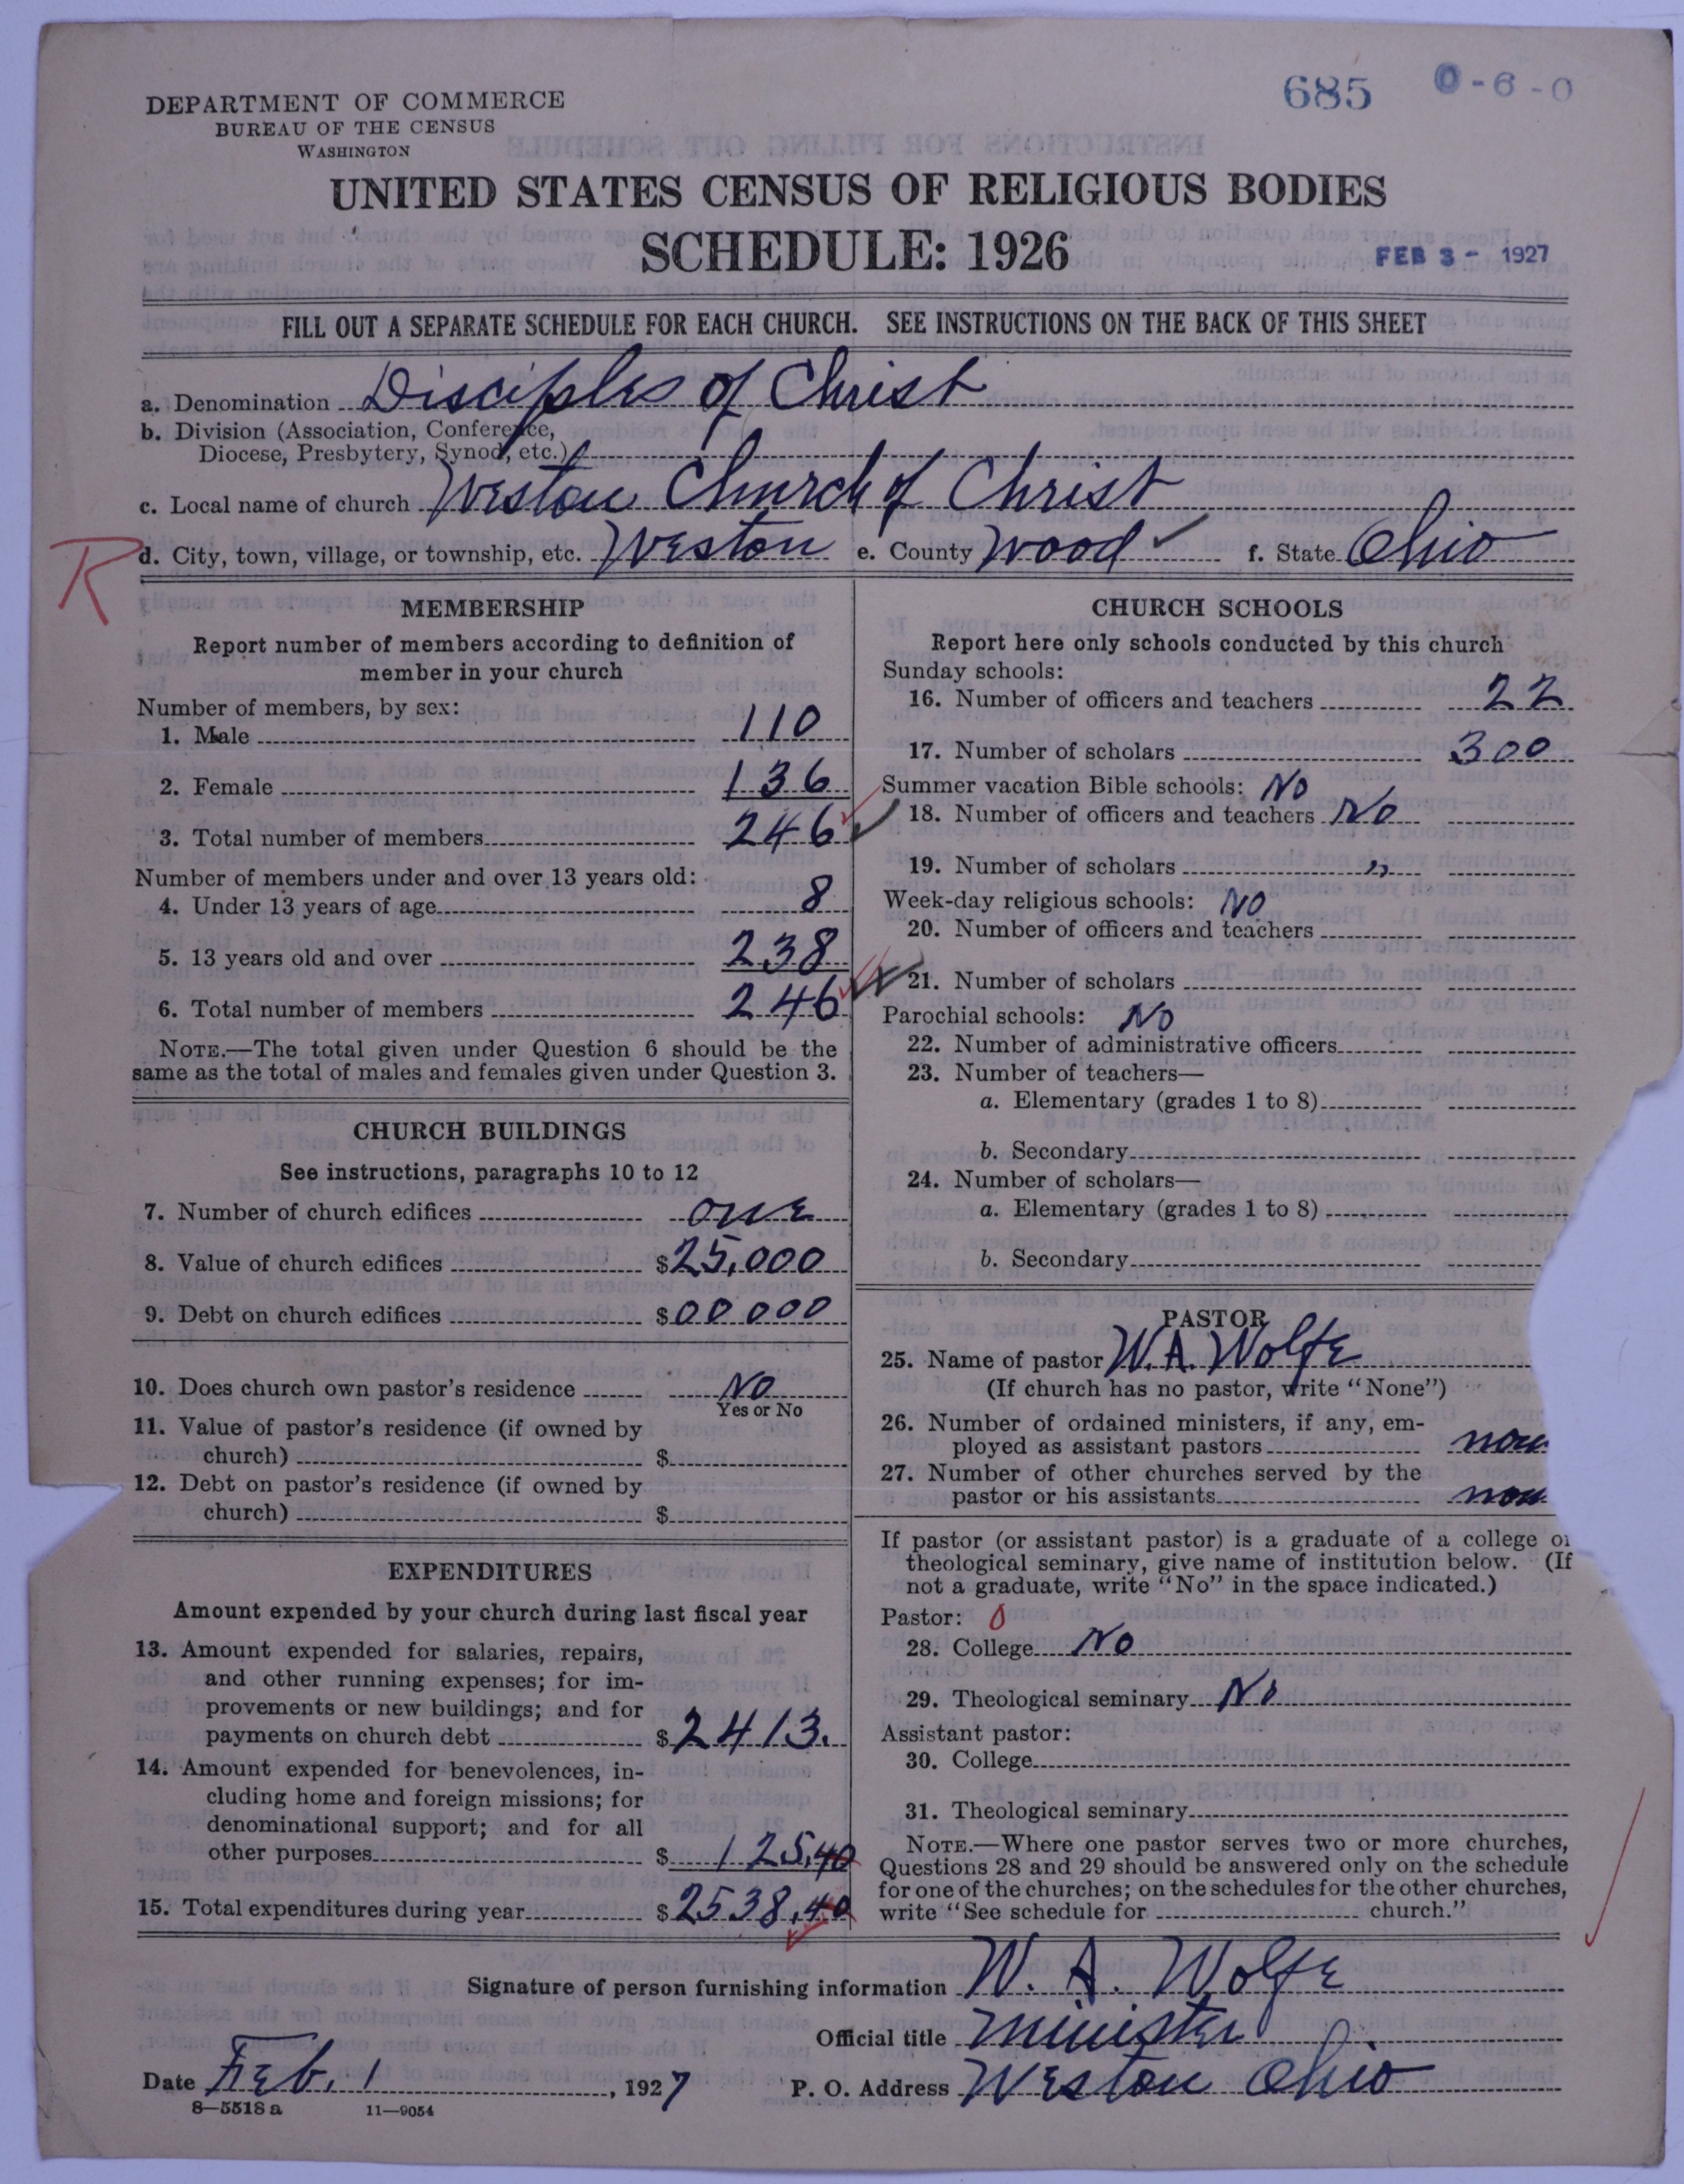 685 0-6-0
DEPARTMENT OF COMMERCE
BUREAU OF THE CENSUS
WASHINGTON
UNITED STATES CENSUS OF RELIGIOUS BODIES
SCHEDULE: 1926
FEB 3 - 1927
FILL OUT A SEPARATE SCHEDULE FOR EACH CHURCH. SEE INSTRUCTIONS ON THE BACK OF THIS SHEET
a. Denomination Disciples of Christ
b. Division (Association, Conference,
Diocese, Presbytery, Synod, etc.)
c. Local name of church Weston Church of Christ
R
d. City, town, village, or township, etc. Weston e. County Wood ✓ f. State Ohio
MEMBERSHIP
Report number of members according to definition of
member in your church
Number of members, by sex:
1. Male 110
2. Female 136
3. Total number of members 246
Number of members under and over 13 years old:
4. Under 13 years of age 8
5. 13 years old and over 238
6. Total number of members 246
NOTE.—The total given under Question 6 should be the
same as the total of males and females given under Question 3.
CHURCH BUILDINGS
See instructions, paragraphs 10 to 12
7. Number of church edifices one
8. Value of church edifices $25,000
9. Debt on church edifices $00000
10. Does church own pastor's residence No
Yes or No
11. Value of pastor's residence (if owned by
church) $
12. Debt on pastor's residence (if owned by
church) $
EXPENDITURES
Amount expended by your church during last fiscal year
13. Amount expended for salaries, repairs,
and other running expenses; for im-
provements or new buildings; and for
payments on church debt $2413.
14. Amount expended for benevolences, in-
cluding home and foreign missions; for
denominational support; and for all
other purposes $125,40
15. Total expenditures during year $2538,40
CHURCH SCHOOLS
Report here only schools conducted by this church
Sunday schools:
16. Number of officers and teachers 22
17. Number of scholars 300
Summer vacation Bible schools: No
18. Number of officers and teachers No
19. Number of scholars ,,
Week-day religious schools: No
20. Number of officers and teachers
21. Number of scholars
Parochial schools: No
22. Number of administrative officers
23. Number of teachers—
a. Elementary (grades 1 to 8)
b. Secondary
24. Number of scholars—
a. Elementary (grades 1 to 8)
b. Secondary
PASTOR
25. Name of pastor W. A. Wolfe
(If church has no pastor, write "None")
26. Number of ordained ministers, if any, em-
ployed as assistant pastors non
27. Number of other churches served by the
pastor or his assistants non
If pastor (or assistant pastor) is a graduate of a college or
theological seminary, give name of institution below. (If
not a graduate, write "No" in the space indicated.)
Pastor: 0
28. College No
29. Theological seminary No
Assistant pastor:
30. College
31. Theological seminary
NOTE.—Where one pastor serves two or more churches,
Questions 28 and 29 should be answered only on the schedule
for one of the churches; on the schedules for the other churches,
write "See schedule for church."
Signature of person furnishing information W. A. Wolfe
Official title Minister
Date Feb. 1, 1927 P. O. Address Weston Ohio
8—5518 a 11—9054